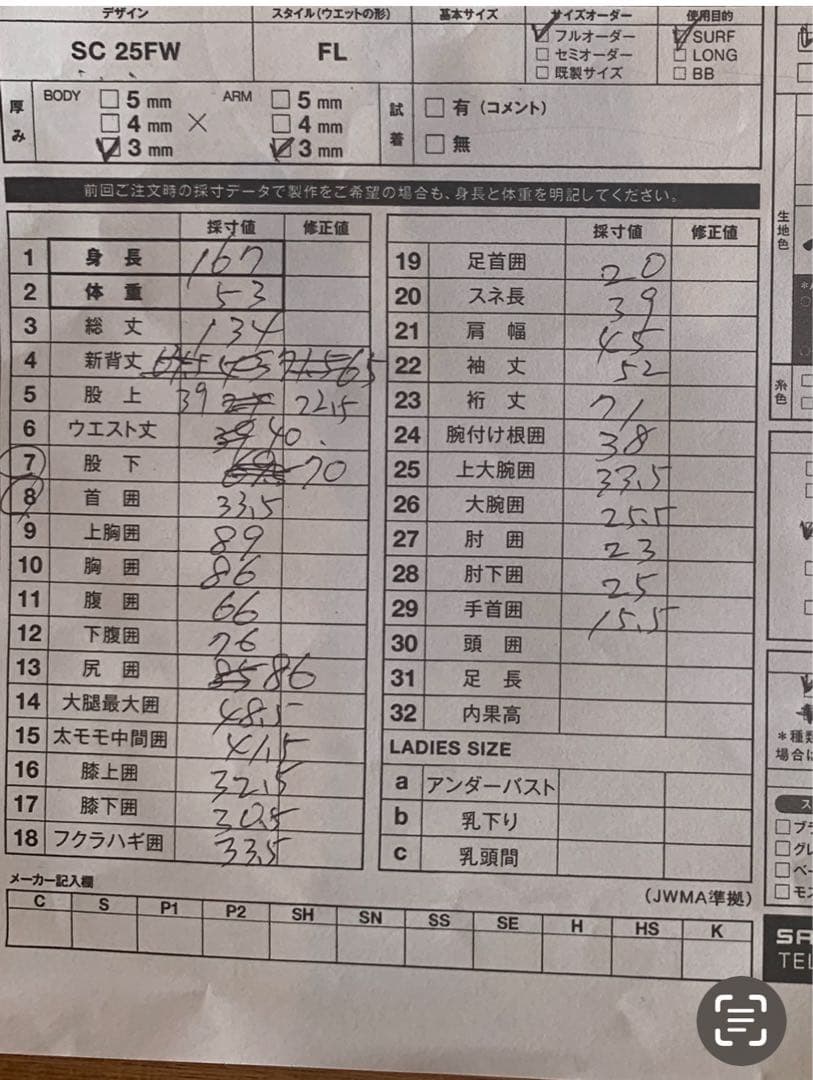 デザイン スタイル(ウエットの形) 基本サイズ サイズオーダー 使用目的
SC 25FW FL
フルオーダー
セミオーダー
既製サイズ
SURF
LONG
BB
厚み
BODY 5 mm
4 mm
3 mm
×
ARM 5 mm
4 mm
3 mm
試着
有(コメント)
無
前回ご注文時の採寸データで製作をご希望の場合も、身長と体重を明記してください。
採寸値 修正値
1 身長 167
2 体重 53
3 総丈 134
4 新背丈 65
5 股上 39 22,5
6 ウエスト丈 40
7 股下 70
8 首囲 33,5
9 上胸囲 89
10 胸囲 86
11 腹囲 66
12 下腹囲 76
13 尻囲 85 86
14 大腿最大囲 48,5
15 太モモ中間囲 41,5
16 膝上囲 32,5
17 膝下囲 30,5
18 フクラハギ囲 33,5
採寸値 修正値
19 足首囲 20
20 スネ長 39
21 肩幅 45
22 袖丈 52
23 裄丈 71
24 腕付け根囲 38
25 上大腕囲 33,5
26 大腕囲 25,5
27 肘囲 23
28 肘下囲 25
29 手首囲 15,5
30 頭囲
31 足長
32 内果高
LADIES SIZE
a アンダーバスト
b 乳下り
c 乳頭間
(JWMA準拠)
メーカー記入欄
C S P1 P2 SH SN SS SE H HS K
生地色
糸色
*種類
場合は
ス
ブラ
グレ
ベー
モス
SA
TEL